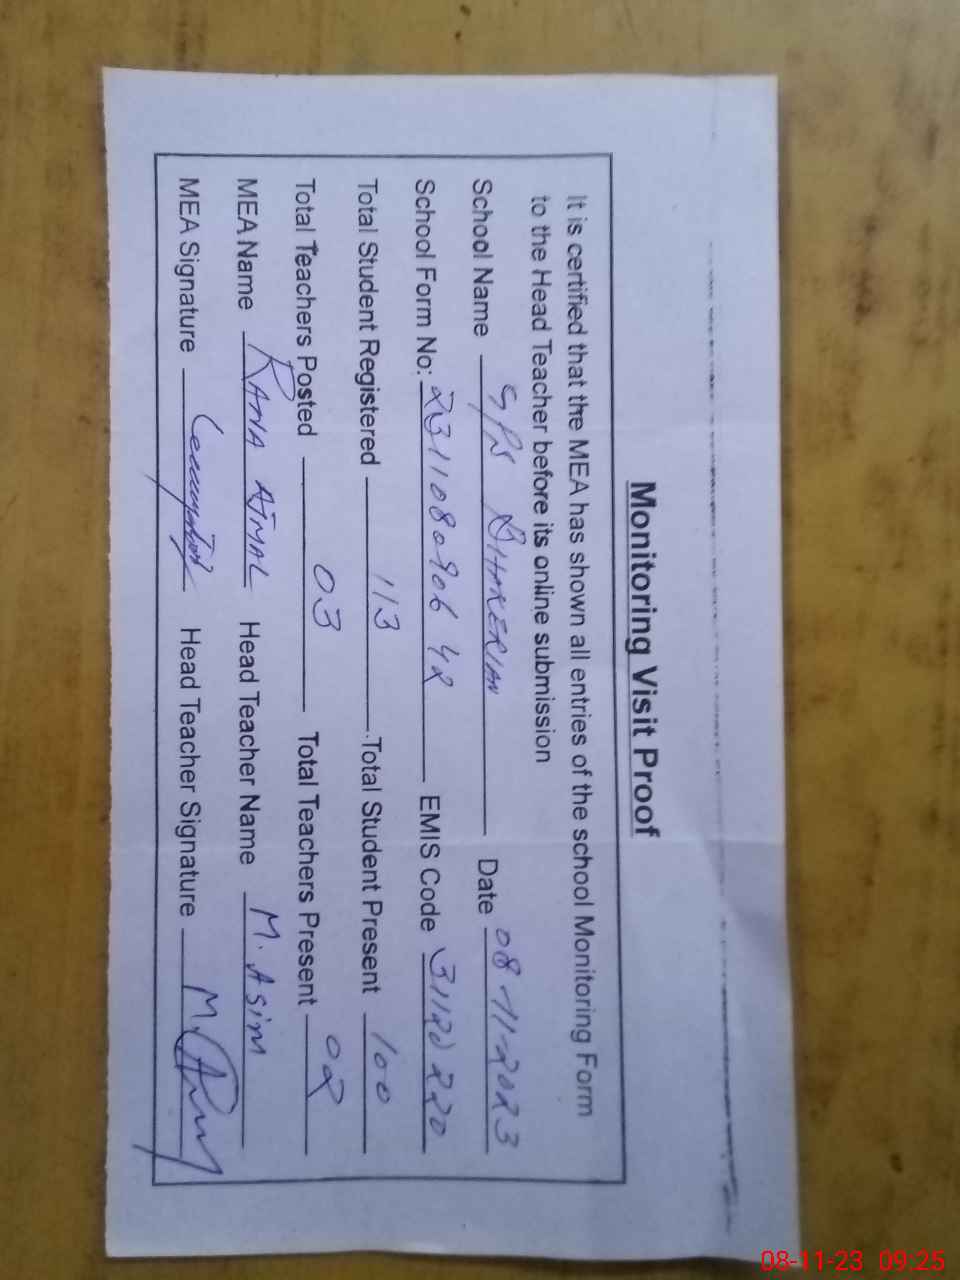 Monitoring Visit Proof
It is certified that the MEA has shown all entries of the school Monitoring Form
to the Head Teacher before its online submission
School Name GPS DHAKERIAN Date 08-11-2023
School Form No: 2311080906 42 EMIS Code 31120220
Total Student Registered 113 Total Student Present 100
Total Teachers Posted 03 Total Teachers Present 02
MEA Name RANA AJMAL Head Teacher Name M. ASim
MEA Signature Head Teacher Signature M.
08-11-23 09:25